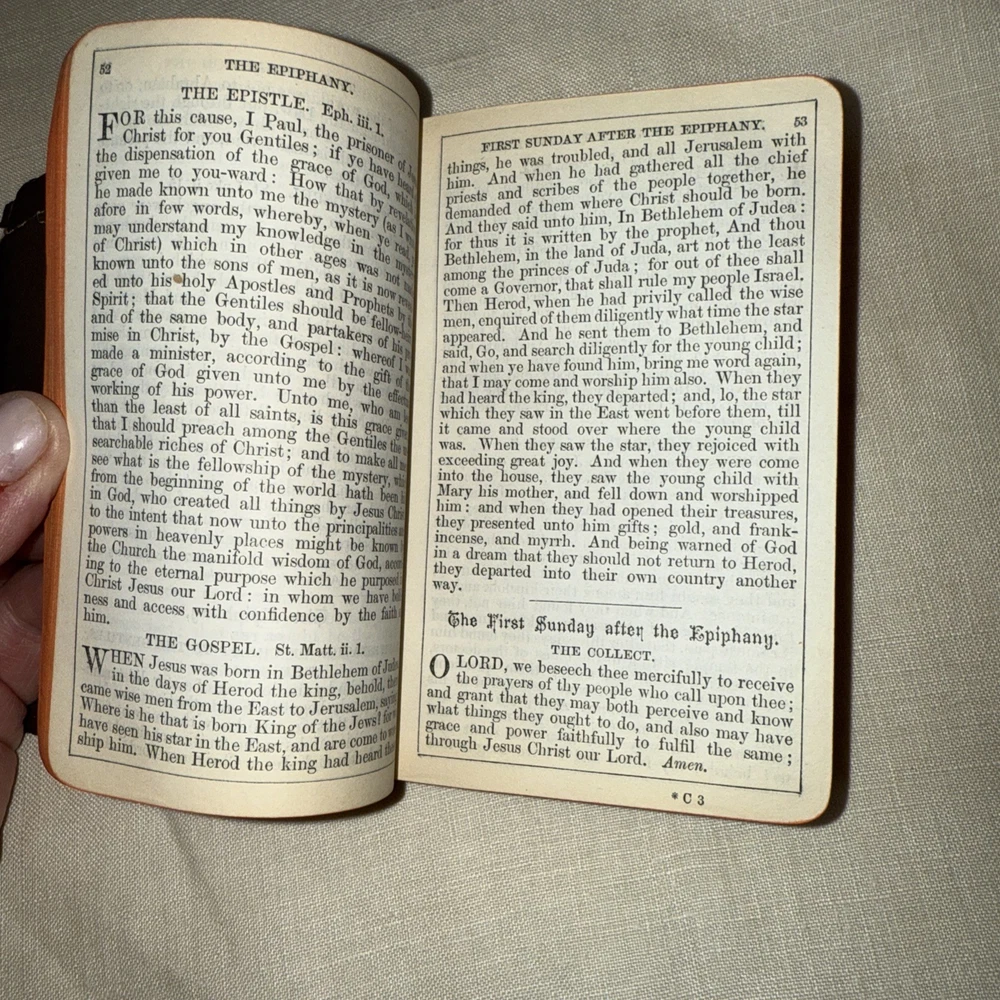 52
THE EPIPHANY.
THE EPISTLE. Eph. iii. 1.
FOR this cause, I Paul, the prisoner of
Christ for you Gentiles; if ye have heard
the dispensation of the grace of God, which
given me to you-ward: How that by
he made known unto me the mystery (as I
afore in few words, whereby, when ye read,
may understand my knowledge in the
of Christ) which in other ages was not
known unto the sons of men, as it is now
ed unto his holy Apostles and Prophets by
Spirit; that the Gentiles should be
and of the same body, and partakers of his
mise in Christ, by the Gospel: whereof I
made a minister, according to the gift of
grace of God given unto me by the
working of his power. Unto me, who am
than the least of all saints, is this grace
that I should preach among the Gentiles the
searchable riches of Christ; and to make all
see what is the fellowship of the mystery,
from the beginning of the world hath been
in God, who created all things by Jesus
to the intent that now unto the principalities
powers in heavenly places might be known
the Church the manifold wisdom of God,
ing to the eternal purpose which he purposed
Christ Jesus our Lord: in whom we have
ness and access with confidence by the faith
him.
THE GOSPEL. St. Matt. ii. 1.
WHEN Jesus was born in Bethlehem of
in the days of Herod the king, behold,
came wise men from the East to Jerusalem,
Where is he that is born King of the Jews?
have seen his star in the East, and are come
ship him. When Herod the king had heard
53
FIRST SUNDAY AFTER THE EPIPHANY.
things, he was troubled, and all Jerusalem with
him. And when he had gathered all the chief
priests and scribes of the people together, he
demanded of them where Christ should be born.
And they said unto him, In Bethlehem of Judea:
for thus it is written by the prophet, And thou
Bethlehem, in the land of Juda, art not the least
among the princes of Juda; for out of thee shall
come a Governor, that shall rule my people Israel.
Then Herod, when he had privily called the wise
men, enquired of them diligently what time the star
appeared. And he sent them to Bethlehem, and
said, Go, and search diligently for the young child;
and when ye have found him, bring me word again,
that I may come and worship him also. When they
had heard the king, they departed; and, lo, the star
which they saw in the East went before them, till
it came and stood over where the young child
was. When they saw the star, they rejoiced with
exceeding great joy. And when they were come
into the house, they saw the young child with
Mary his mother, and fell down and worshipped
him: and when they had opened their treasures,
they presented unto him gifts; gold, and frank-
incense, and myrrh. And being warned of God
in a dream that they should not return to Herod,
they departed into their own country another
way.
The First Sunday after the Epiphany.
THE COLLECT.
O LORD, we beseech thee mercifully to receive
the prayers of thy people who call upon thee;
and grant that they may both perceive and know
what things they ought to do, and also may have
grace and power faithfully to fulfil the same;
through Jesus Christ our Lord. Amen.
*C 3